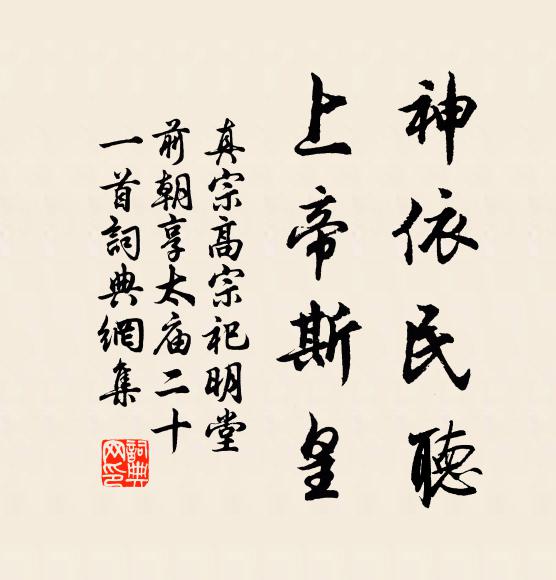 神依民聽
上帝斯皇
真宗高宗祀明堂
前朝享太庙二十
一首詞典網集
詞典
网印